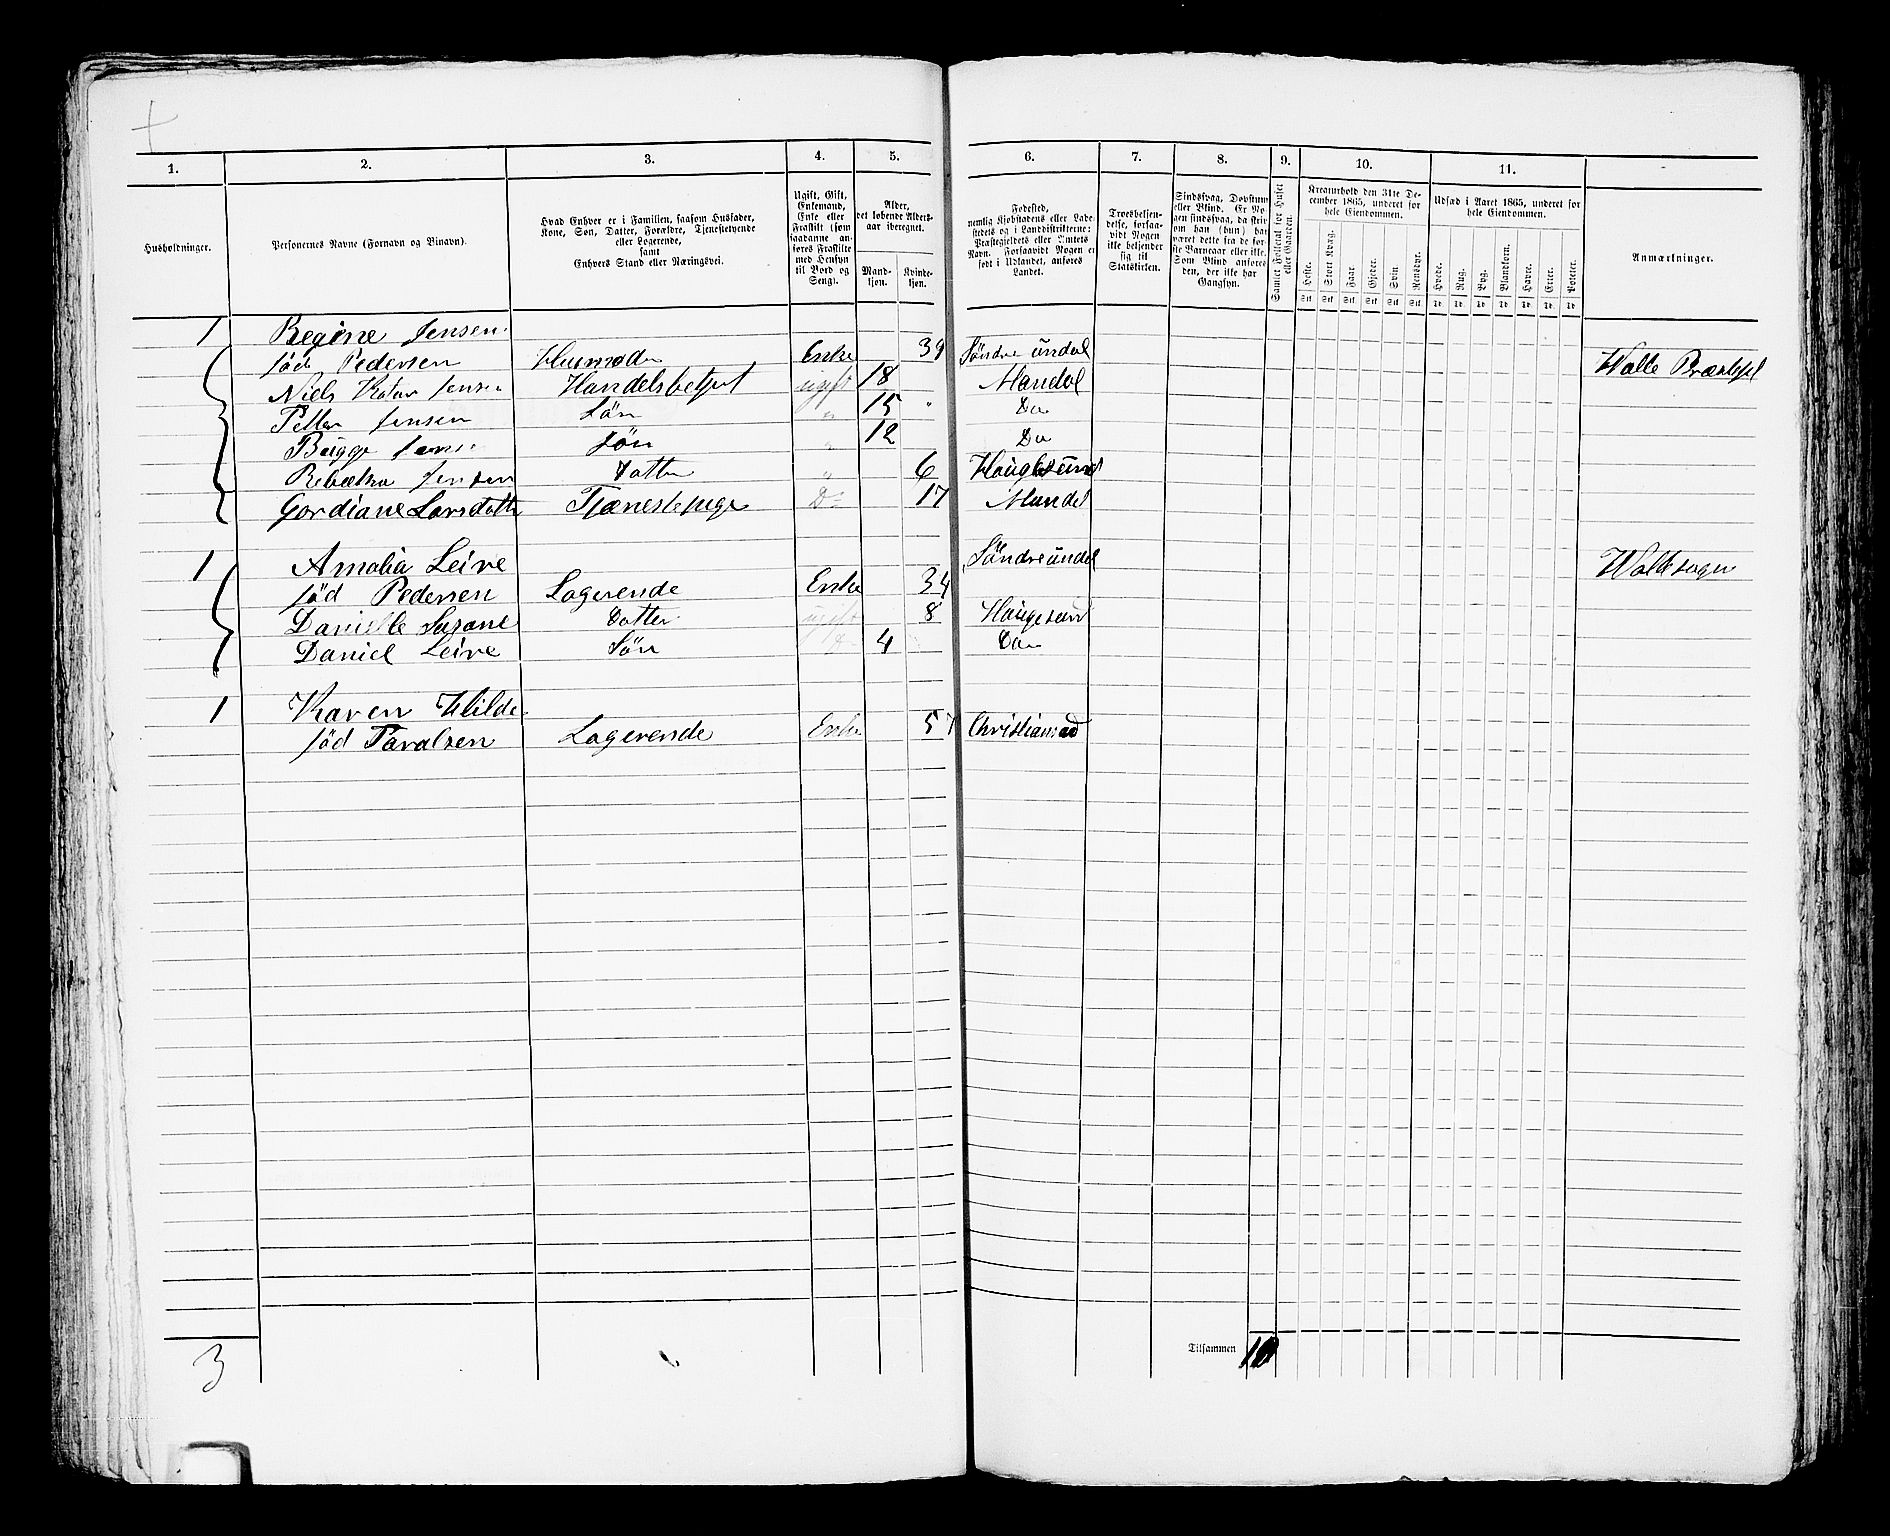 1. 2. 3. 4. 5. 6. 7. 8. 9. 10. 11.
Husholdninger.
Personernes Navne (Fornavn og Binavn).
Hvad Enhver er i Familien, saasom Husfader,
Kone, Søn, Datter, Forældre, Tjenestetyende
eller Logerende,
samt
Enhvers Stand eller Næringsvei.
Ugift, Gift,
Enkemand,
Enke eller
Fraskilt (som
saadanne an-
føres Fraskilte
med Hensyn
til Bord og
Seng).
Alder,
det løbende Alders-
aar iberegnet.
Mand-
kjøn.
Kvinde-
kjøn.
Fødested,
nemlig Kjøbstadens eller Lade-
stedets og i Landdistrikterne:
Præstegjeldets eller Amtets
Navn. Forsaavidt Nogen er
født i Udlandet, anføres
Landet.
Troesbekjen-
delse, forsaa-
vidt Nogen
ikke bekjender
sig til
Statskirken.
Sindssvag, Døvstum
eller Blind. Er No-
gen sindssvag, da skri-
ves om han (hun) har
været dette fra de før-
ste Barneaar eller ikke.
Som Blind anføres
den, der ikke har
Gangsyn.
Samlet Folketal for Huset
eller Gaarden.
Kreaturhold den 31te De-
cember 1865, underet for
hele Eiendommen.
Heste. Stort Kvæg. Faar. Gjeder. Svin. Rensdyr.
Udsæd i Aaret 1865, underet for
hele Eiendommen.
Hvede. Rug. Byg. Blandkorn. Havre. Erter. Poteter.
Anmærkninger.
1 Regine Jensen
fød Pedersen Husmoder Enke 39 Søndre undal Walle Præstegjel
Niels Jensen Handelsbetjent ugift 18 Mandal
Petter Jensen Søn " 15 " Do
Bugge Jensen Søn " 12 Do
Rebekka Jensen Datter " 6 Haugesund
Gordiane Larsdatter Tjenestepige Do 17 Mandal
1 Amalia Leire Søndreundal
fød Pedersen Logerende Enke 34 Wallesogn
Danielle Susane Datter ugift 8 Haugesund
Daniel Leire Søn Do 4 Do
1 Karen Hilde
fød Logerende Enke 57 Christiansad
3
Tilsammen 10